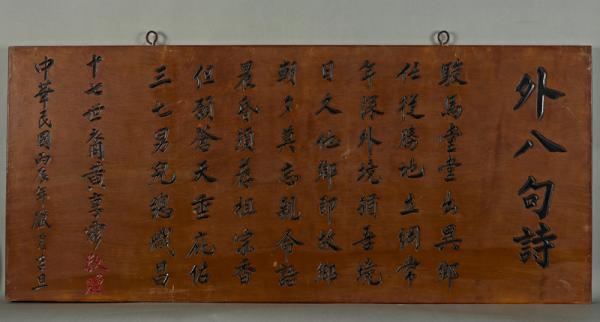 外八句詩
駿馬堂堂出異鄉
任從勝地立綱常
年深外境猶吾境
日久他鄉即故鄉
朝夕莫忘親命語
晨昏須薦祖宗香
但願蒼天垂庇佑
三七男兒總熾昌
十七世裔黃享敬題
中華民國丙辰年歲首吉旦